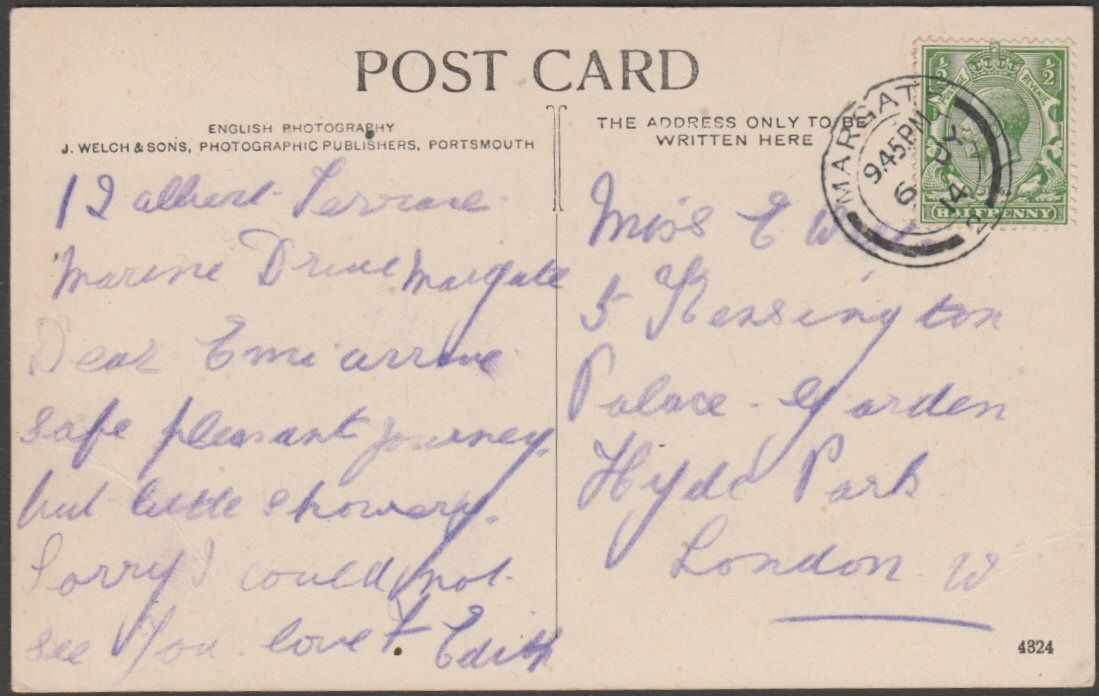 POST CARD
ENGLISH PHOTOGRAPHY
J. WELCH & SONS, PHOTOGRAPHIC PUBLISHERS, PORTSMOUTH
THE ADDRESS ONLY TO BE
WRITTEN HERE
½ POSTAGE REVENUE ½
HALFPENNY
MARGATE
9.45PM
6 JY
14
2
12 albert Terrace
Marine Drive Margate
Dear Em arrive
safe pleasant journey,
but little showery.
Sorry I could not
see You. love Edith
Miss E
5 Kensington
Palace Garden
Hyde Park
London W
4324